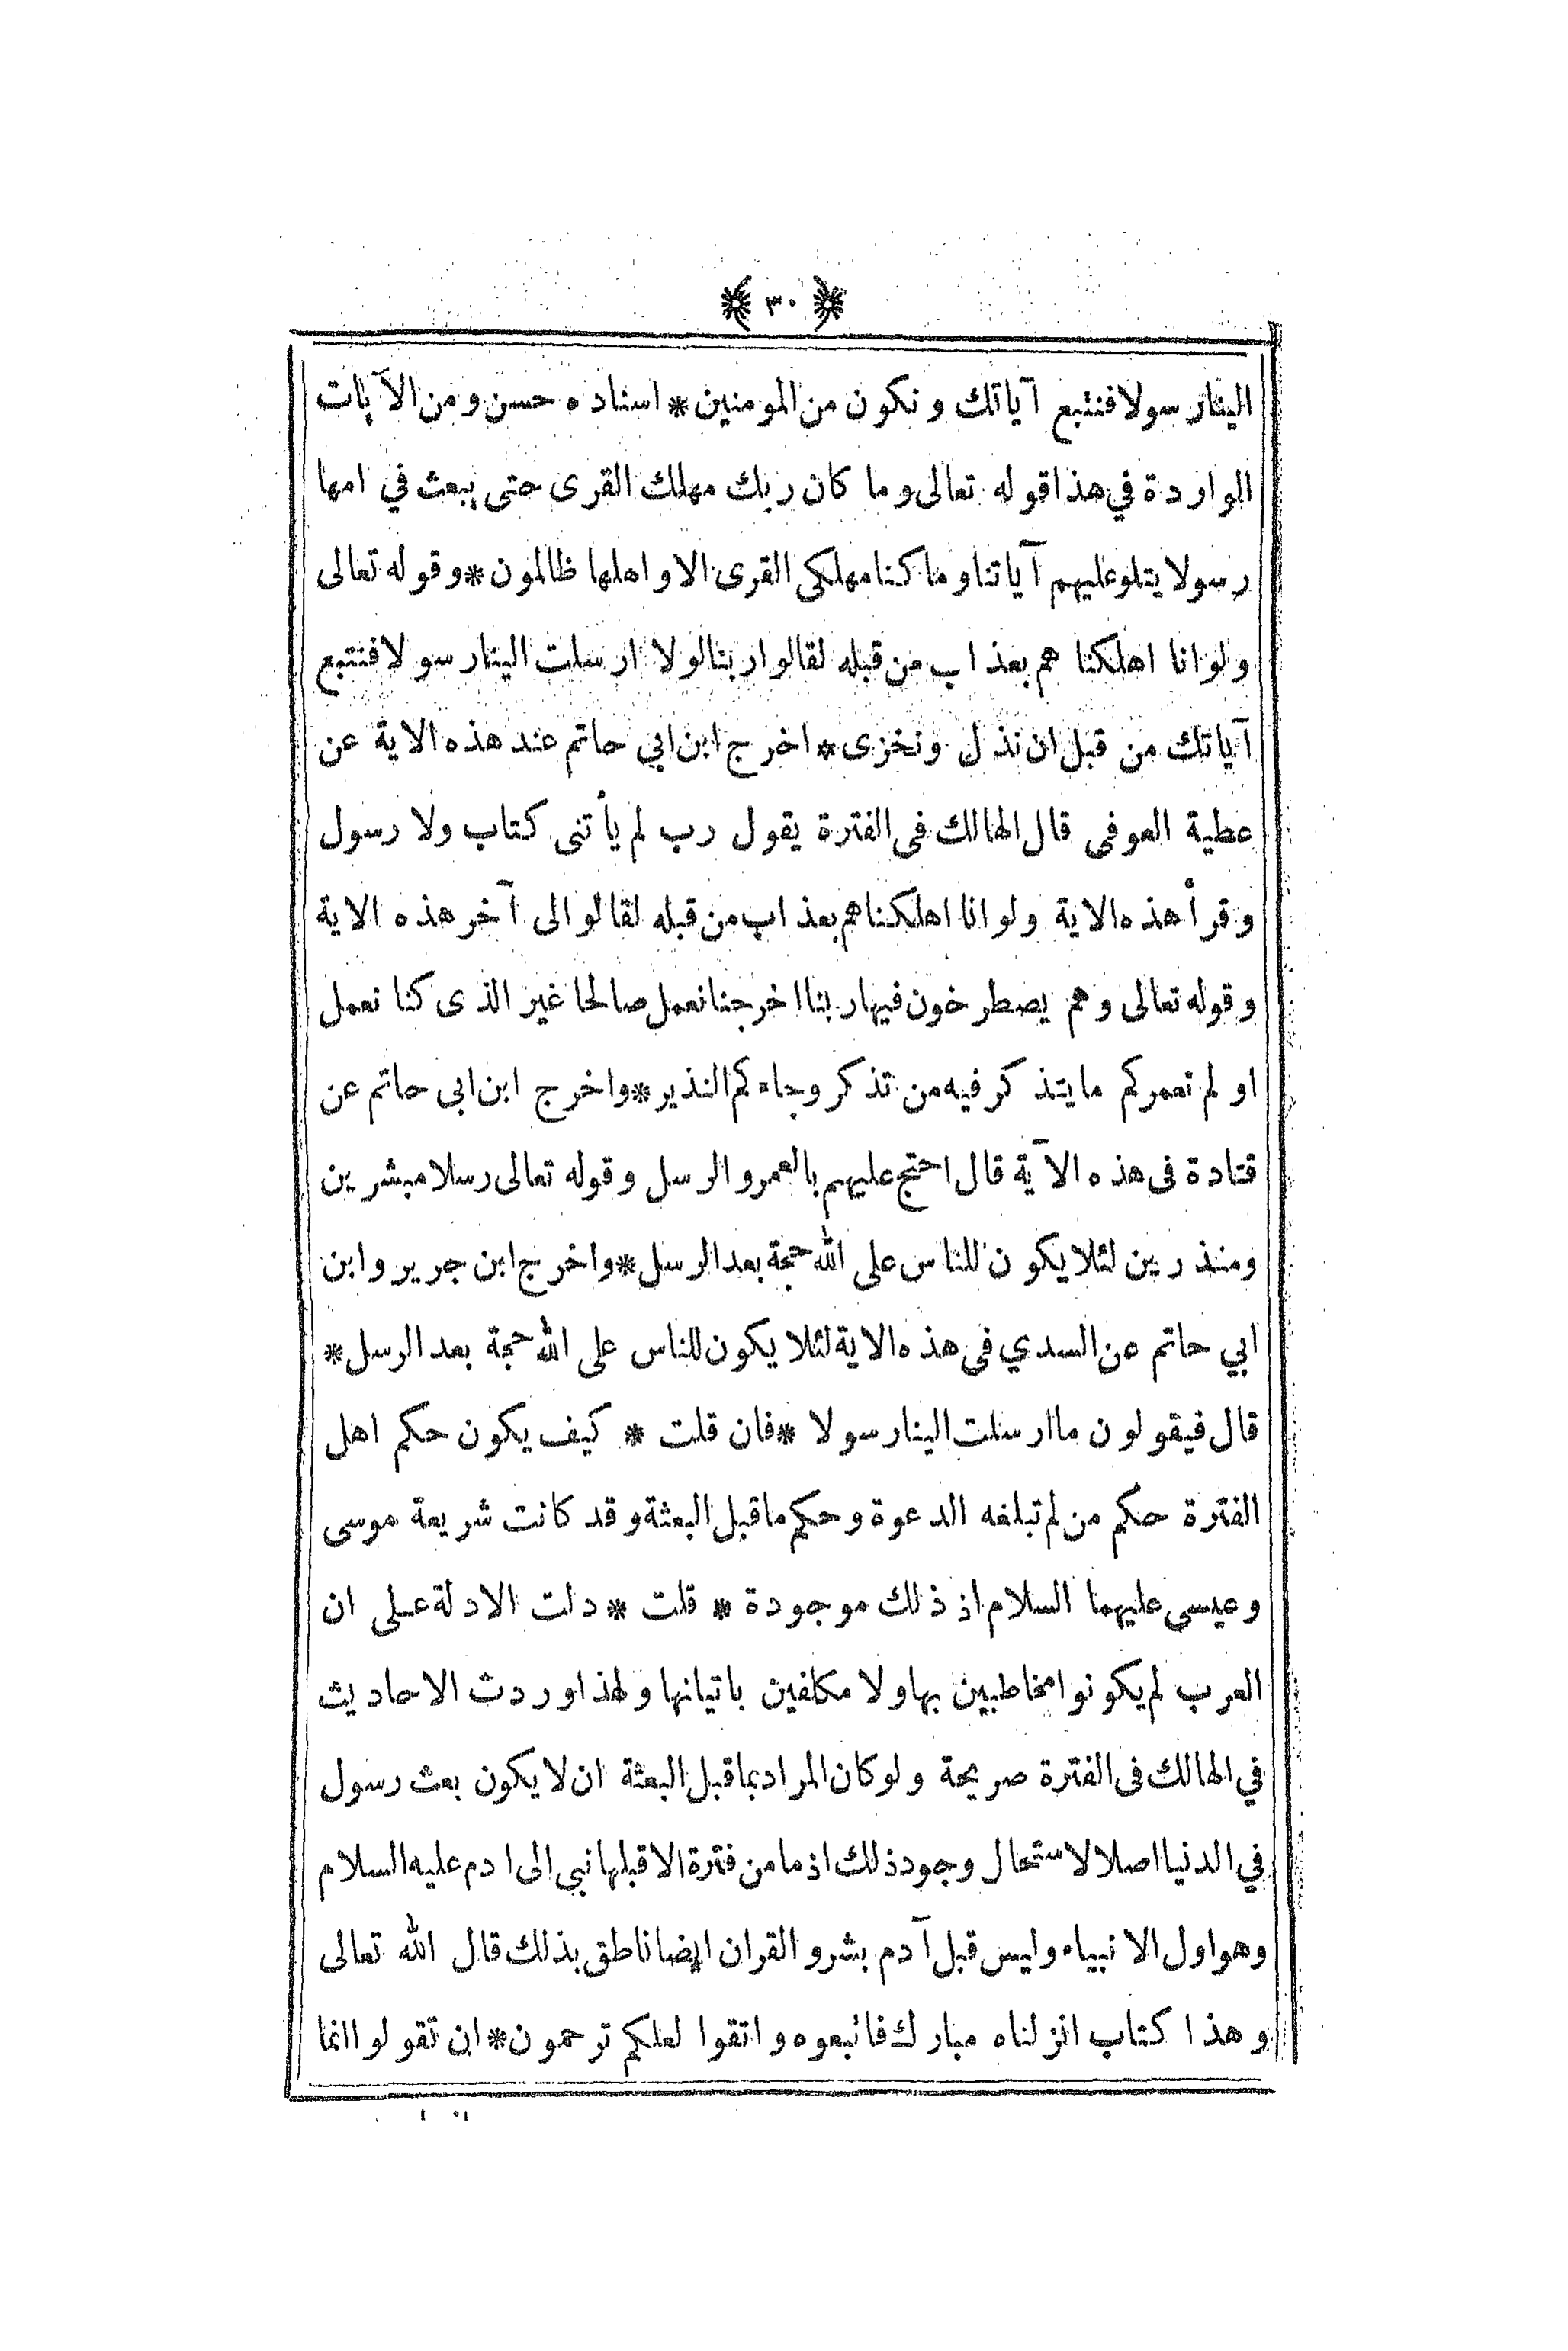 ﴿ ٣٠ ﴾
الينا رسولا فنتبع آياتك ونكون من المومنين * اسناده حسن ومن الآيات
الواردة في هذا قوله تعالى وما كان ربك مهلك القرى حتى يبعث في امها
رسولا يتلو عليهم آياتنا وما كنا مهلكي القرى الا واهلها ظالمون * وقوله تعالى
ولو انا اهلكنا هم بعذاب من قبله لقالوا ربنا لولا ارسلت الينا رسولا فنتبع
آياتك من قبل ان نذل ونخزى * اخرج ابن ابي حاتم عند هذه الاية عن
عطية العوفى قال الهالك فى الفترة يقول رب لم يأتنى كتاب ولا رسول
وقرأ هذه الاية ولو انا اهلكناهم بعذاب من قبله لقالو الى آخر هذه الاية
وقوله تعالى وهم يصطرخون فيها ربنا اخرجنا نعمل صالحا غير الذى كنا نعمل
او لم نعمركم ما يتذكر فيه من تذكر وجاءكم النذير * واخرج ابن ابى حاتم عن
قتادة فى هذه الآية قال احتج عليهم بالعمر والرسل وقوله تعالى رسلا مبشرين
ومنذرين لئلا يكون للناس على الله حجة بعد الرسل * واخرج ابن جرير وابن
ابي حاتم عن السدي فى هذه الاية لئلا يكون للناس على الله حجة بعد الرسل *
قال فيقولون ما ارسلت الينا رسولا * فان قلت * كيف يكون حكم اهل
الفترة حكم من لم تبلغه الدعوة وحكم ما قبل البعثة وقد كانت شريعة موسى
وعيسى عليهما السلام اذ ذلك موجودة * قلت * دلت الادلة على ان
العرب لم يكونوا مخاطبين بها ولا مكلفين باتيانها ولهذا وردت الاحاديث
في الهالك فى الفترة صريحة ولو كان المراد بما قبل البعثة ان لا يكون بعث رسول
في الدنيا اصلا لاستحال وجود ذلك اذ ما من فترة الا قبلها نبي الى ادم عليه السلام
وهو اول الانبياء وليس قبل آدم بشر والقران ايضا ناطق بذلك قال الله تعالى
وهذا كتاب انزلناه مبارك فاتبعوه واتقوا لعلكم ترحمون * ان تقولوا انما